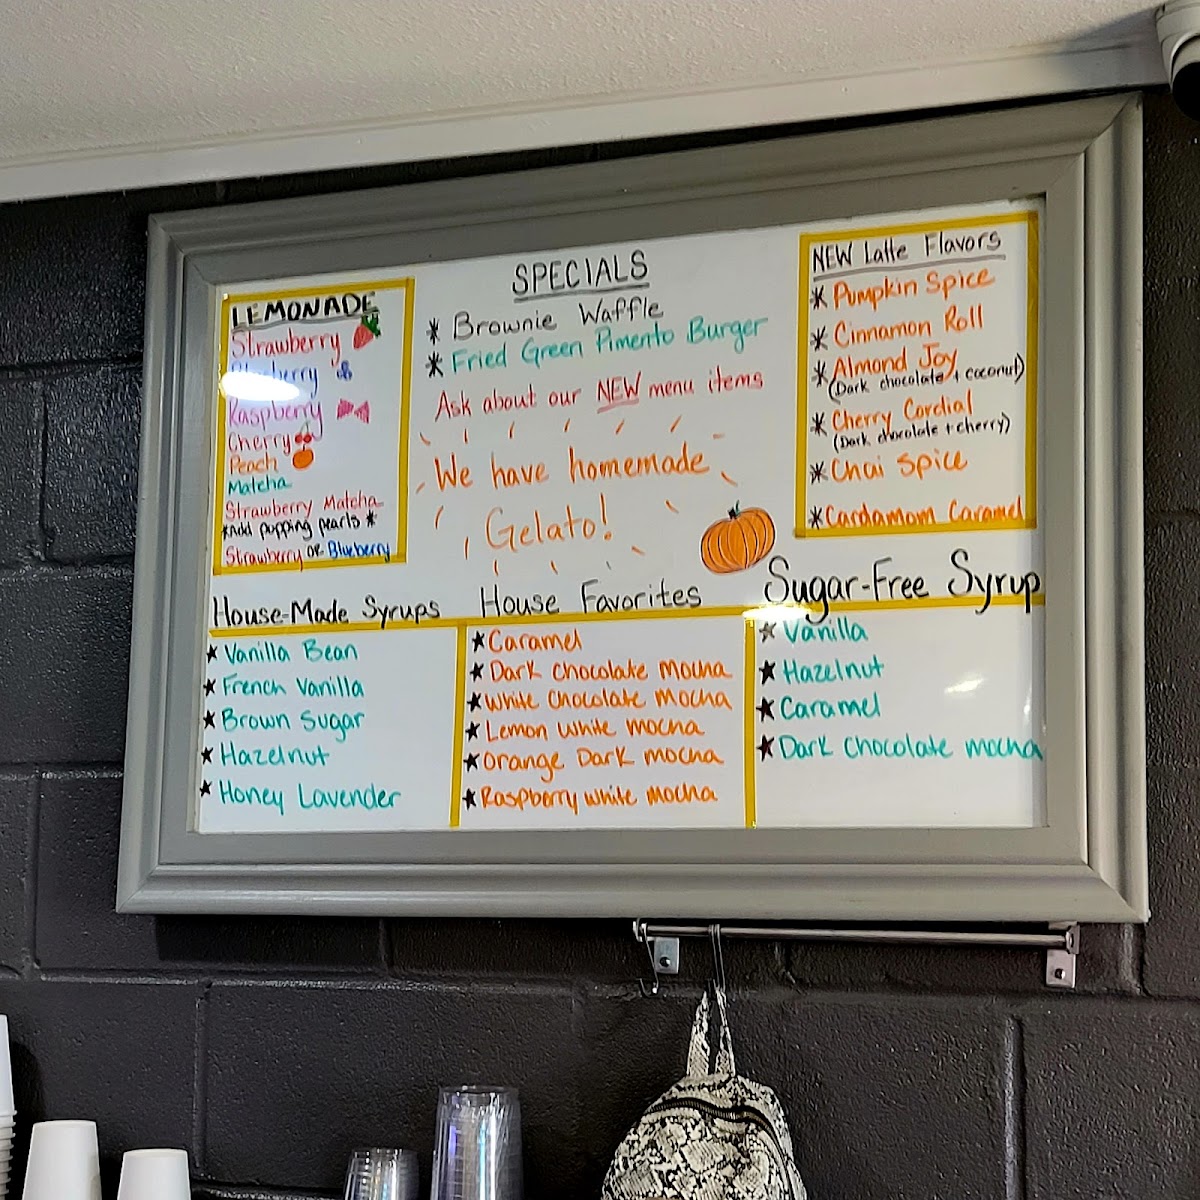 LEMONADE
Strawberry
Blueberry
Raspberry
Cherry
Peach
Matcha
Strawberry Matcha
*Add popping pearls*
Strawberry or Blueberry
SPECIALS
* Brownie Waffle
* Fried Green Pimento Burger
Ask about our NEW menu items
We have homemade
Gelato!
NEW Latte Flavors
* Pumpkin Spice
* Cinnamon Roll
* Almond Joy
(Dark chocolate + coconut)
* Cherry Cordial
(Dark chocolate + cherry)
* Chai Spice
* Cardamom Caramel
House-Made Syrups
★ Vanilla Bean
★ French Vanilla
★ Brown Sugar
★ Hazelnut
★ Honey Lavender
House Favorites
★ Caramel
★ Dark Chocolate Mocha
★ White Chocolate Mocha
★ Lemon White Mocha
★ Orange Dark Mocha
★ Raspberry White Mocha
Sugar-Free Syrup
★ Vanilla
★ Hazelnut
★ Caramel
★ Dark Chocolate Mocha